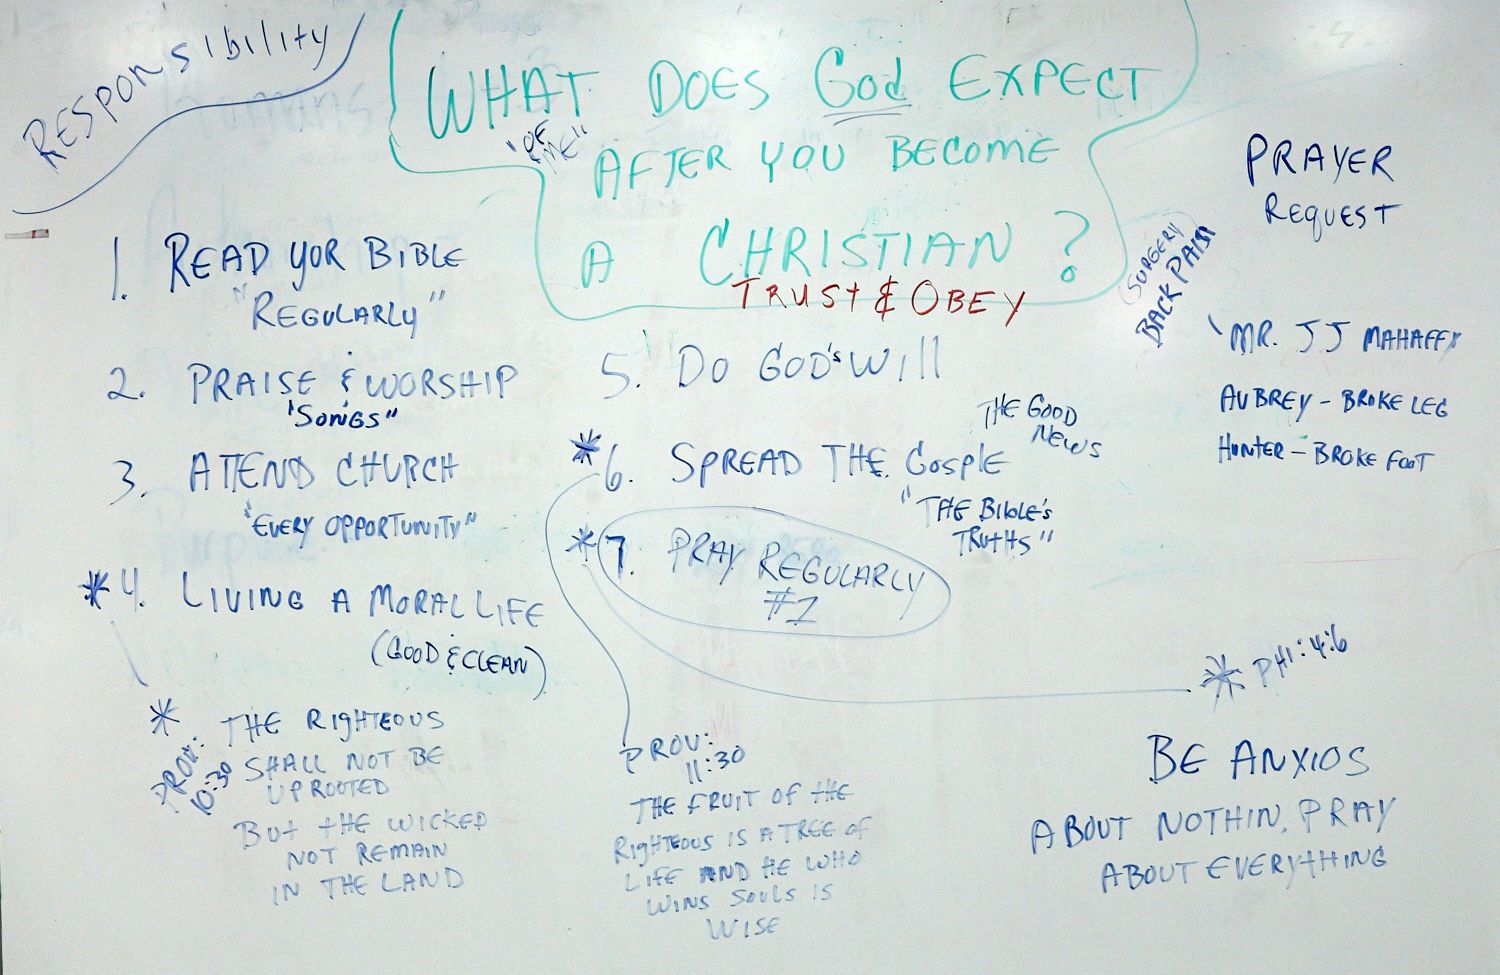 RESPONSIBILITY
WHAT DOES GOD EXPECT
"OF
ME"
AFTER YOU BECOME
A CHRISTIAN?
TRUST & OBEY
1. READ YOR BIBLE
"REGULARLY"
2. PRAISE & WORSHIP
"SONGS"
3. ATTEND CHURCH
"EVERY OPPORTUNITY"
* 4. LIVING A MORAL LIFE
(GOOD & CLEAN)
*
PROV:
10:30
THE RIGHTEOUS
SHALL NOT BE
UPROOTED
BUT THE WICKED
NOT REMAIN
IN THE LAND
5. DO GOD'S WILL
* 6. SPREAD THE GOSPLE
THE GOOD
NEWS
"THE BIBLE'S
TRUTHS"
* 7. PRAY REGULARLY
#1
PROV:
11:30
THE FRUIT OF THE
RIGHTEOUS IS A TREE OF
LIFE AND HE WHO
WINS SOULS IS
WISE
PRAYER
REQUEST
SURGERY
BACK PAIN
MR. JJ MAHAFFY
AUBREY - BROKE LEG
HUNTER - BROKE FOOT
* PHI: 4:6
BE ANXIOS
ABOUT NOTHIN, PRAY
ABOUT EVERYTHING